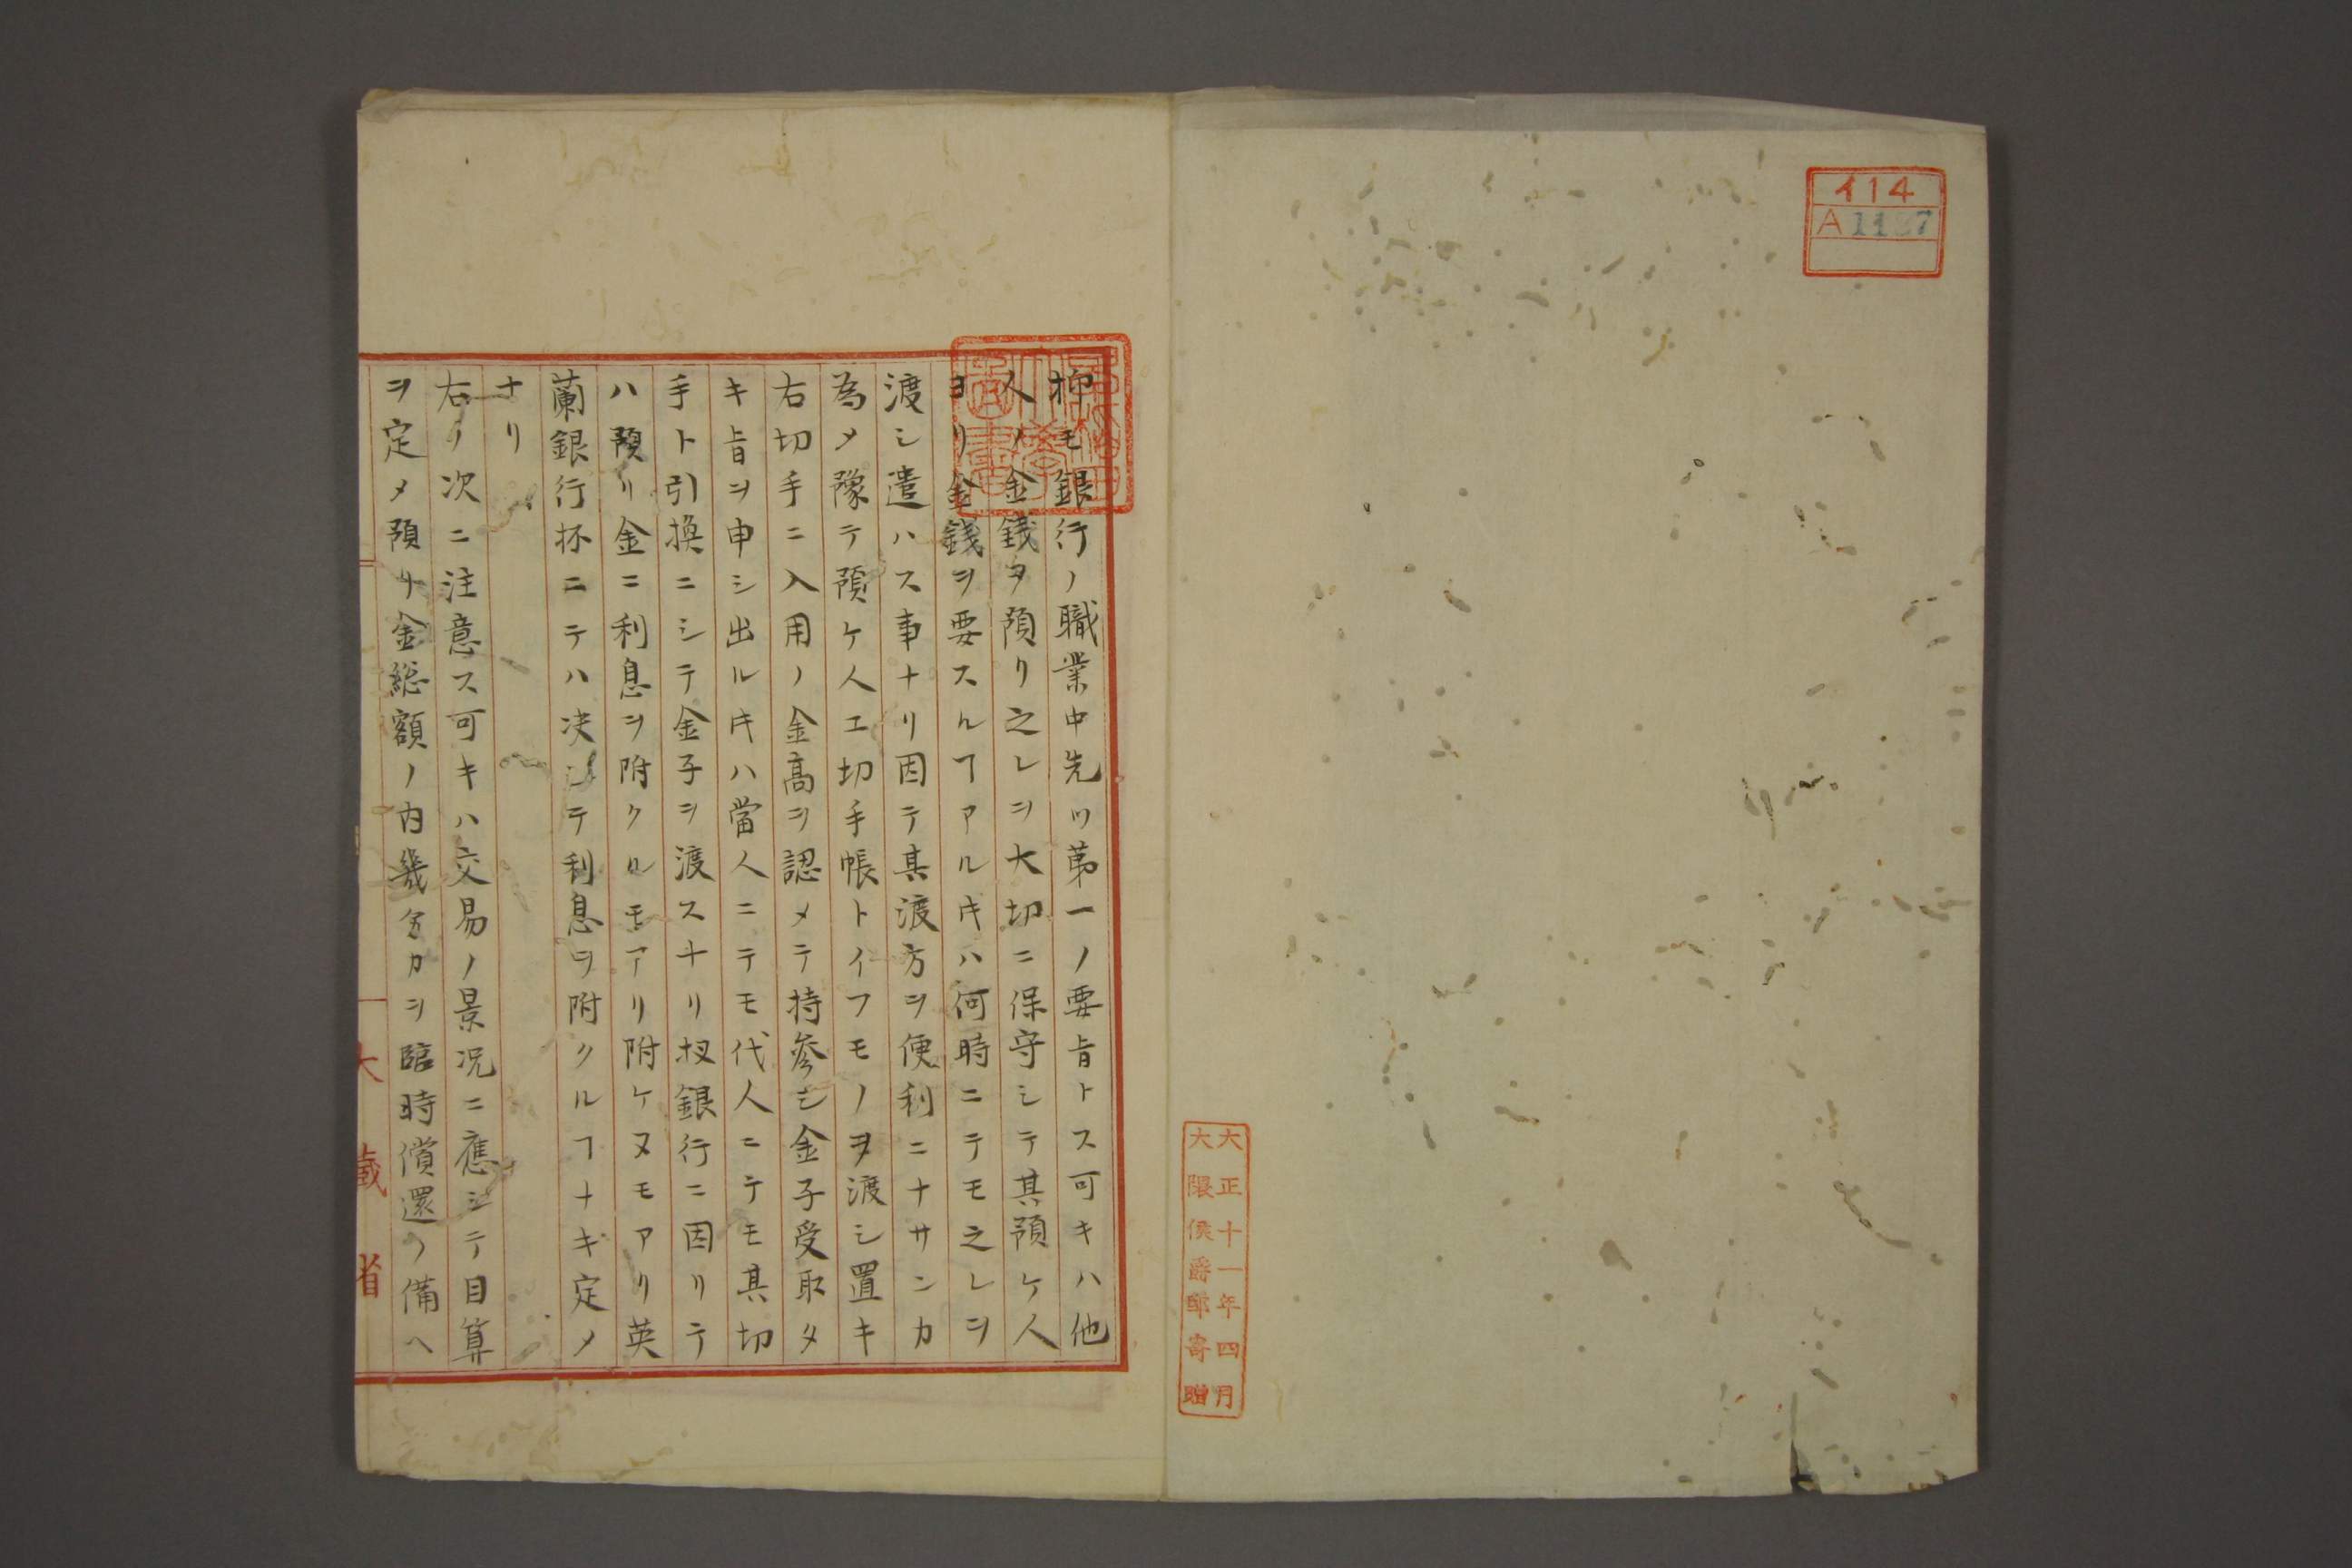 イ14
A 11 7
大正十一年四月
大隈侯爵郵寄贈
抑モ銀行ノ職業中先ツ第一ノ要旨トス可キハ他
人ノ金銭ヲ預リ之レヲ大切ニ保守シテ其預ケ人
ヨリ金銭ヲ要スルヿアルキハ何時ニテモ之レヲ
渡シ遣ハス事ナリ因テ其渡方ヲ便利ニナサンカ
為メ豫テ預ケ人エ切手帳トイフモノヲ渡シ置キ
右切手ニ入用ノ金高ヲ認メテ持參シ金子受取タ
キ旨ヲ申シ出ルキハ當人ニテモ代人ニテモ其切
手ト引換ニシテ金子ヲ渡スナリ扠銀行ニ因リテ
ハ預リ金ニ利息ヲ附クルモアリ附ケヌモアリ英
蘭銀行抔ニテハ决シテ利息ヲ附クルヿナキ定メ
ナリ
右ノ次ニ注意ス可キハ交易ノ景况ニ應シテ目算
ヲ定メ預リ金総額ノ内幾分カヲ臨時償還ノ備ヘ
大藏省